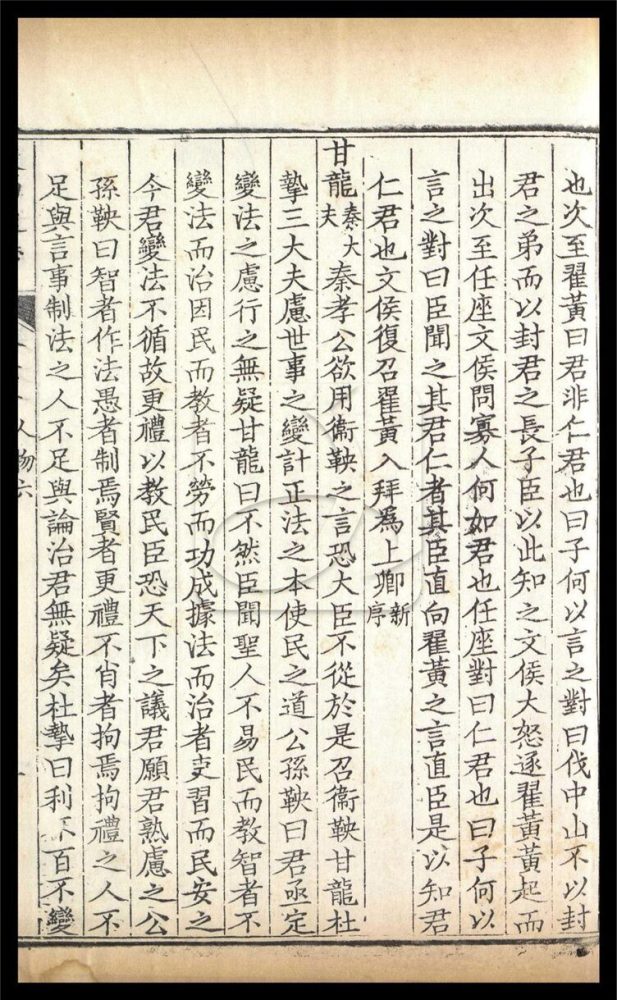 也次至翟黃曰君非仁君也曰子何以言之對曰伐中山不以封
君之弟而以封君之長子臣以此知之文侯大怒逐翟黃黃起而
出次至任座文侯問寡人何如君也任座對曰仁君也曰子何以
言之對曰臣聞之其君仁者其臣直向翟黃之言直臣是以知君
仁君也文侯復召翟黃入拜爲上卿新序
甘龍秦大夫秦孝公欲用衞鞅之言恐大臣不從於是召衞鞅甘龍杜
摯三大夫慮世事之變計正法之本使民之道公孫鞅曰君亟定
變法之慮行之無疑甘龍曰不然臣聞聖人不易民而教智者不
變法而治因民而教者不勞而功成據法而治者吏習而民安之
今君變法不循故更禮以教民臣恐天下之議君願君熟慮之公
孫鞅曰智者作法愚者制焉賢者更禮不肖者拘焉拘禮之人不
足與言事制法之人不足與論治君無疑矣杜摯曰利不百不變
人物六